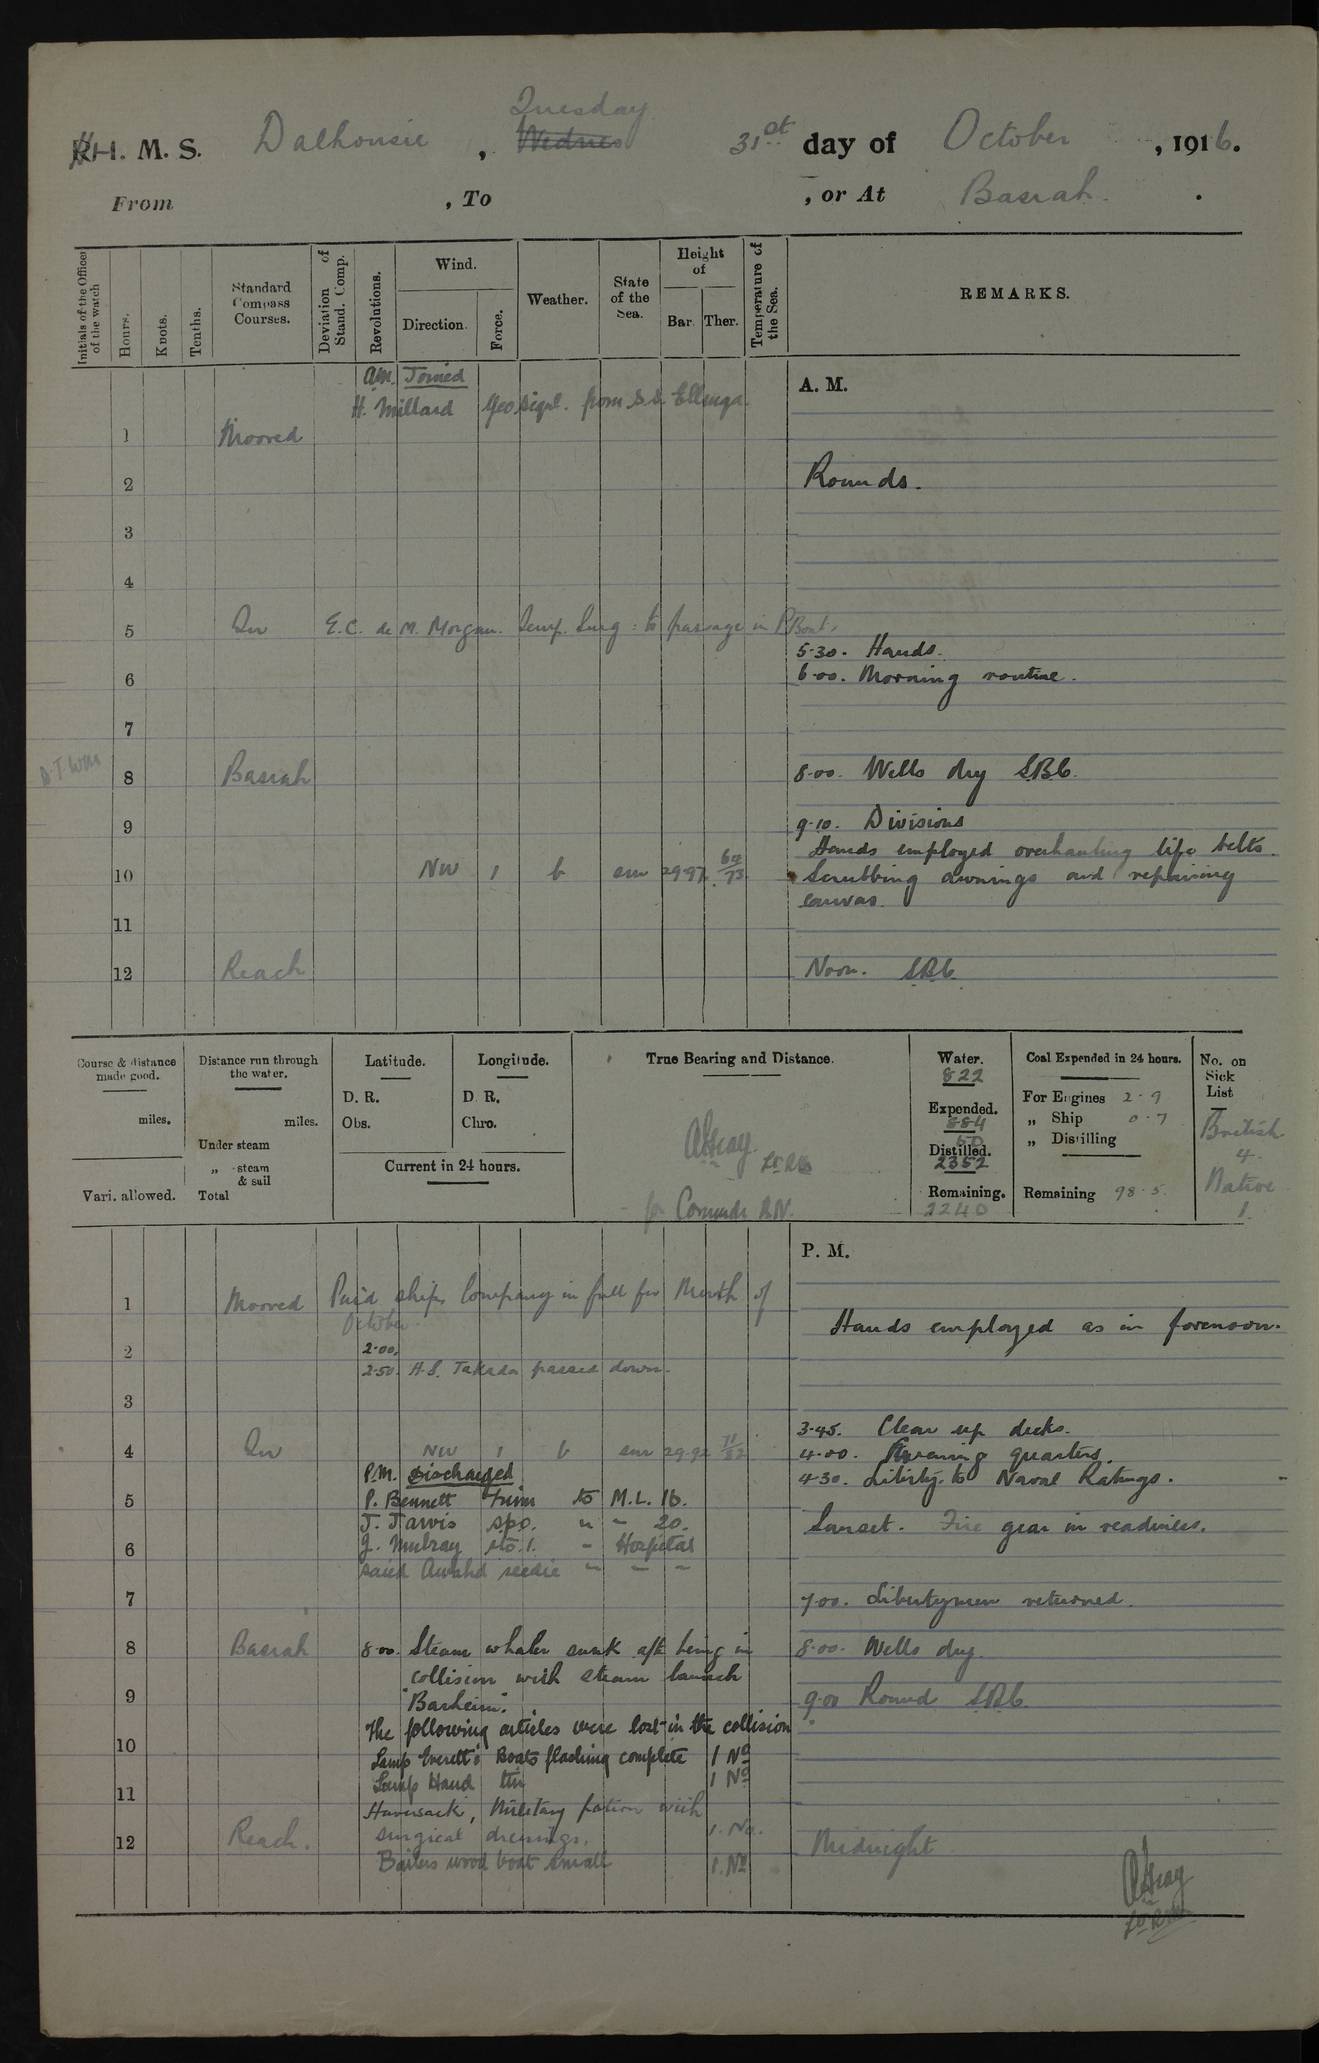 H. M. S. Dalhousie, Tuesday 31st day of October, 1916.
From , To , or At Basrah.
Initials of the Officer of the watch
Hours.
Knots.
Tenths.
Standard Compass Courses.
Deviation of Stand. Comp.
Revolutions.
Wind.
Direction.
Force.
Weather.
State of the Sea.
Height of
Bar. Ther.
Temperature of the Sea.
REMARKS.
A. M.
am. Joined
H. Millard from S.S. Ellenga.
1 Moored
2 Rounds.
3
4
5 In E.C. de M. Morgan. Temp. Surg: to passage in P Boat.
5.30. Hands.
6 6.00. Morning routine.
7
8 Basrah 8.00. Wells dry
9 9.10. Divisions
Hands employed overhauling life belts.
10 NW 1 b sm 29.97 64/73 Scrubbing awnings and repairing
canvas.
11
12 Reach Noon.
Course & distance made good.
miles.
Vari. allowed.
Distance run through the water.
miles.
Under steam
„ steam & sail
Total
Latitude.
D. R.
Obs.
Longitude.
D. R.
Chro.
Current in 24 hours.
True Bearing and Distance.
for Commdr R.N.
Water.
822
Expended.
884
60
Distilled.
2352
Remaining.
2240
Coal Expended in 24 hours.
For Engines 2.9
„ Ship 0.7
„ Distilling
Remaining 98.5
No. on Sick List
British
4.
Native
1.
P. M.
1 Moored Paid ships Company in full for Month of
October.
Hands employed as in forenoon.
2 2.00.
2.50. H.S. Takada passed down.
3
3.45. Clear up decks.
4 In NW 1 b sm 29.92 71/82 4.00. Evening quarters.
P.M. Discharged 4.30. Liberty to Naval Ratings.
5 P. Bennett to M.L. 16.
J. Jarvis spo. „ – 20. Sunset. Fire gear in readiness.
6 J. Mulray sto.1. – Hospital
Said Awahd seedie – – –
7 7.00. Libertymen returned.
8 Basrah 8.00. Steam whaler sunk aft being in 8.00. Wells dry.
collision with steam launch
9 "Barheim". 9.00 Round
The following articles were lost in the collision
10 Lamp Everett's Boats flashing complete 1 No
Lamp Hand tin 1 No
11
Haversack, Military pattern with
12 Reach. surgical dressings. 1. No. Midnight
Bailers wood boat small 1. No